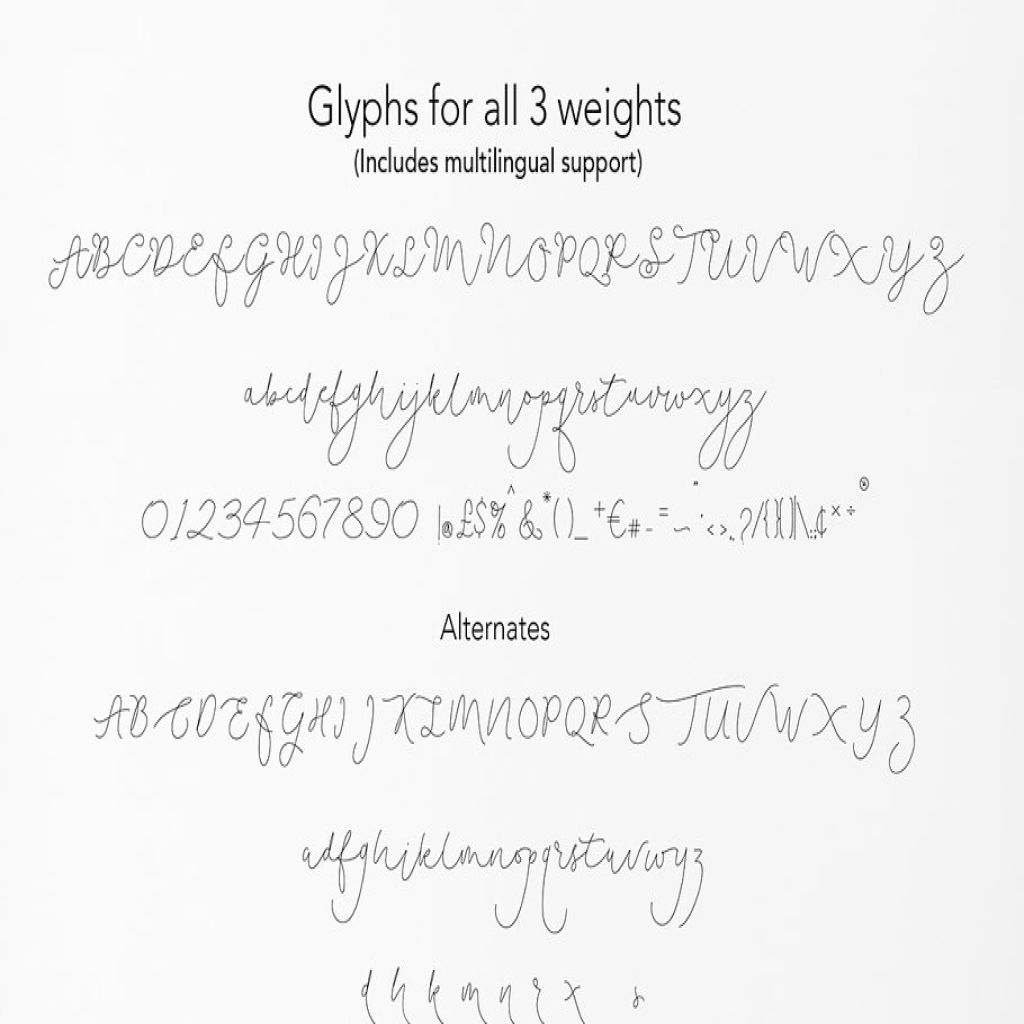 Glyphs for all 3 weights
(Includes multilingual support)
ABCDEFGHIJKLMNOPQRSTUVWXYZ
abcdefghijklmnopqrstuvwxyz
01234567890 |@£$%^&*()_+€#-=~"'<>,.?/{}[]|\:;¢×÷®
Alternates
ABCDEFGHIJKLMNOPQRSTUVWXYZ
adfghijklmnopqrstuvwyz
d h k m n r x s